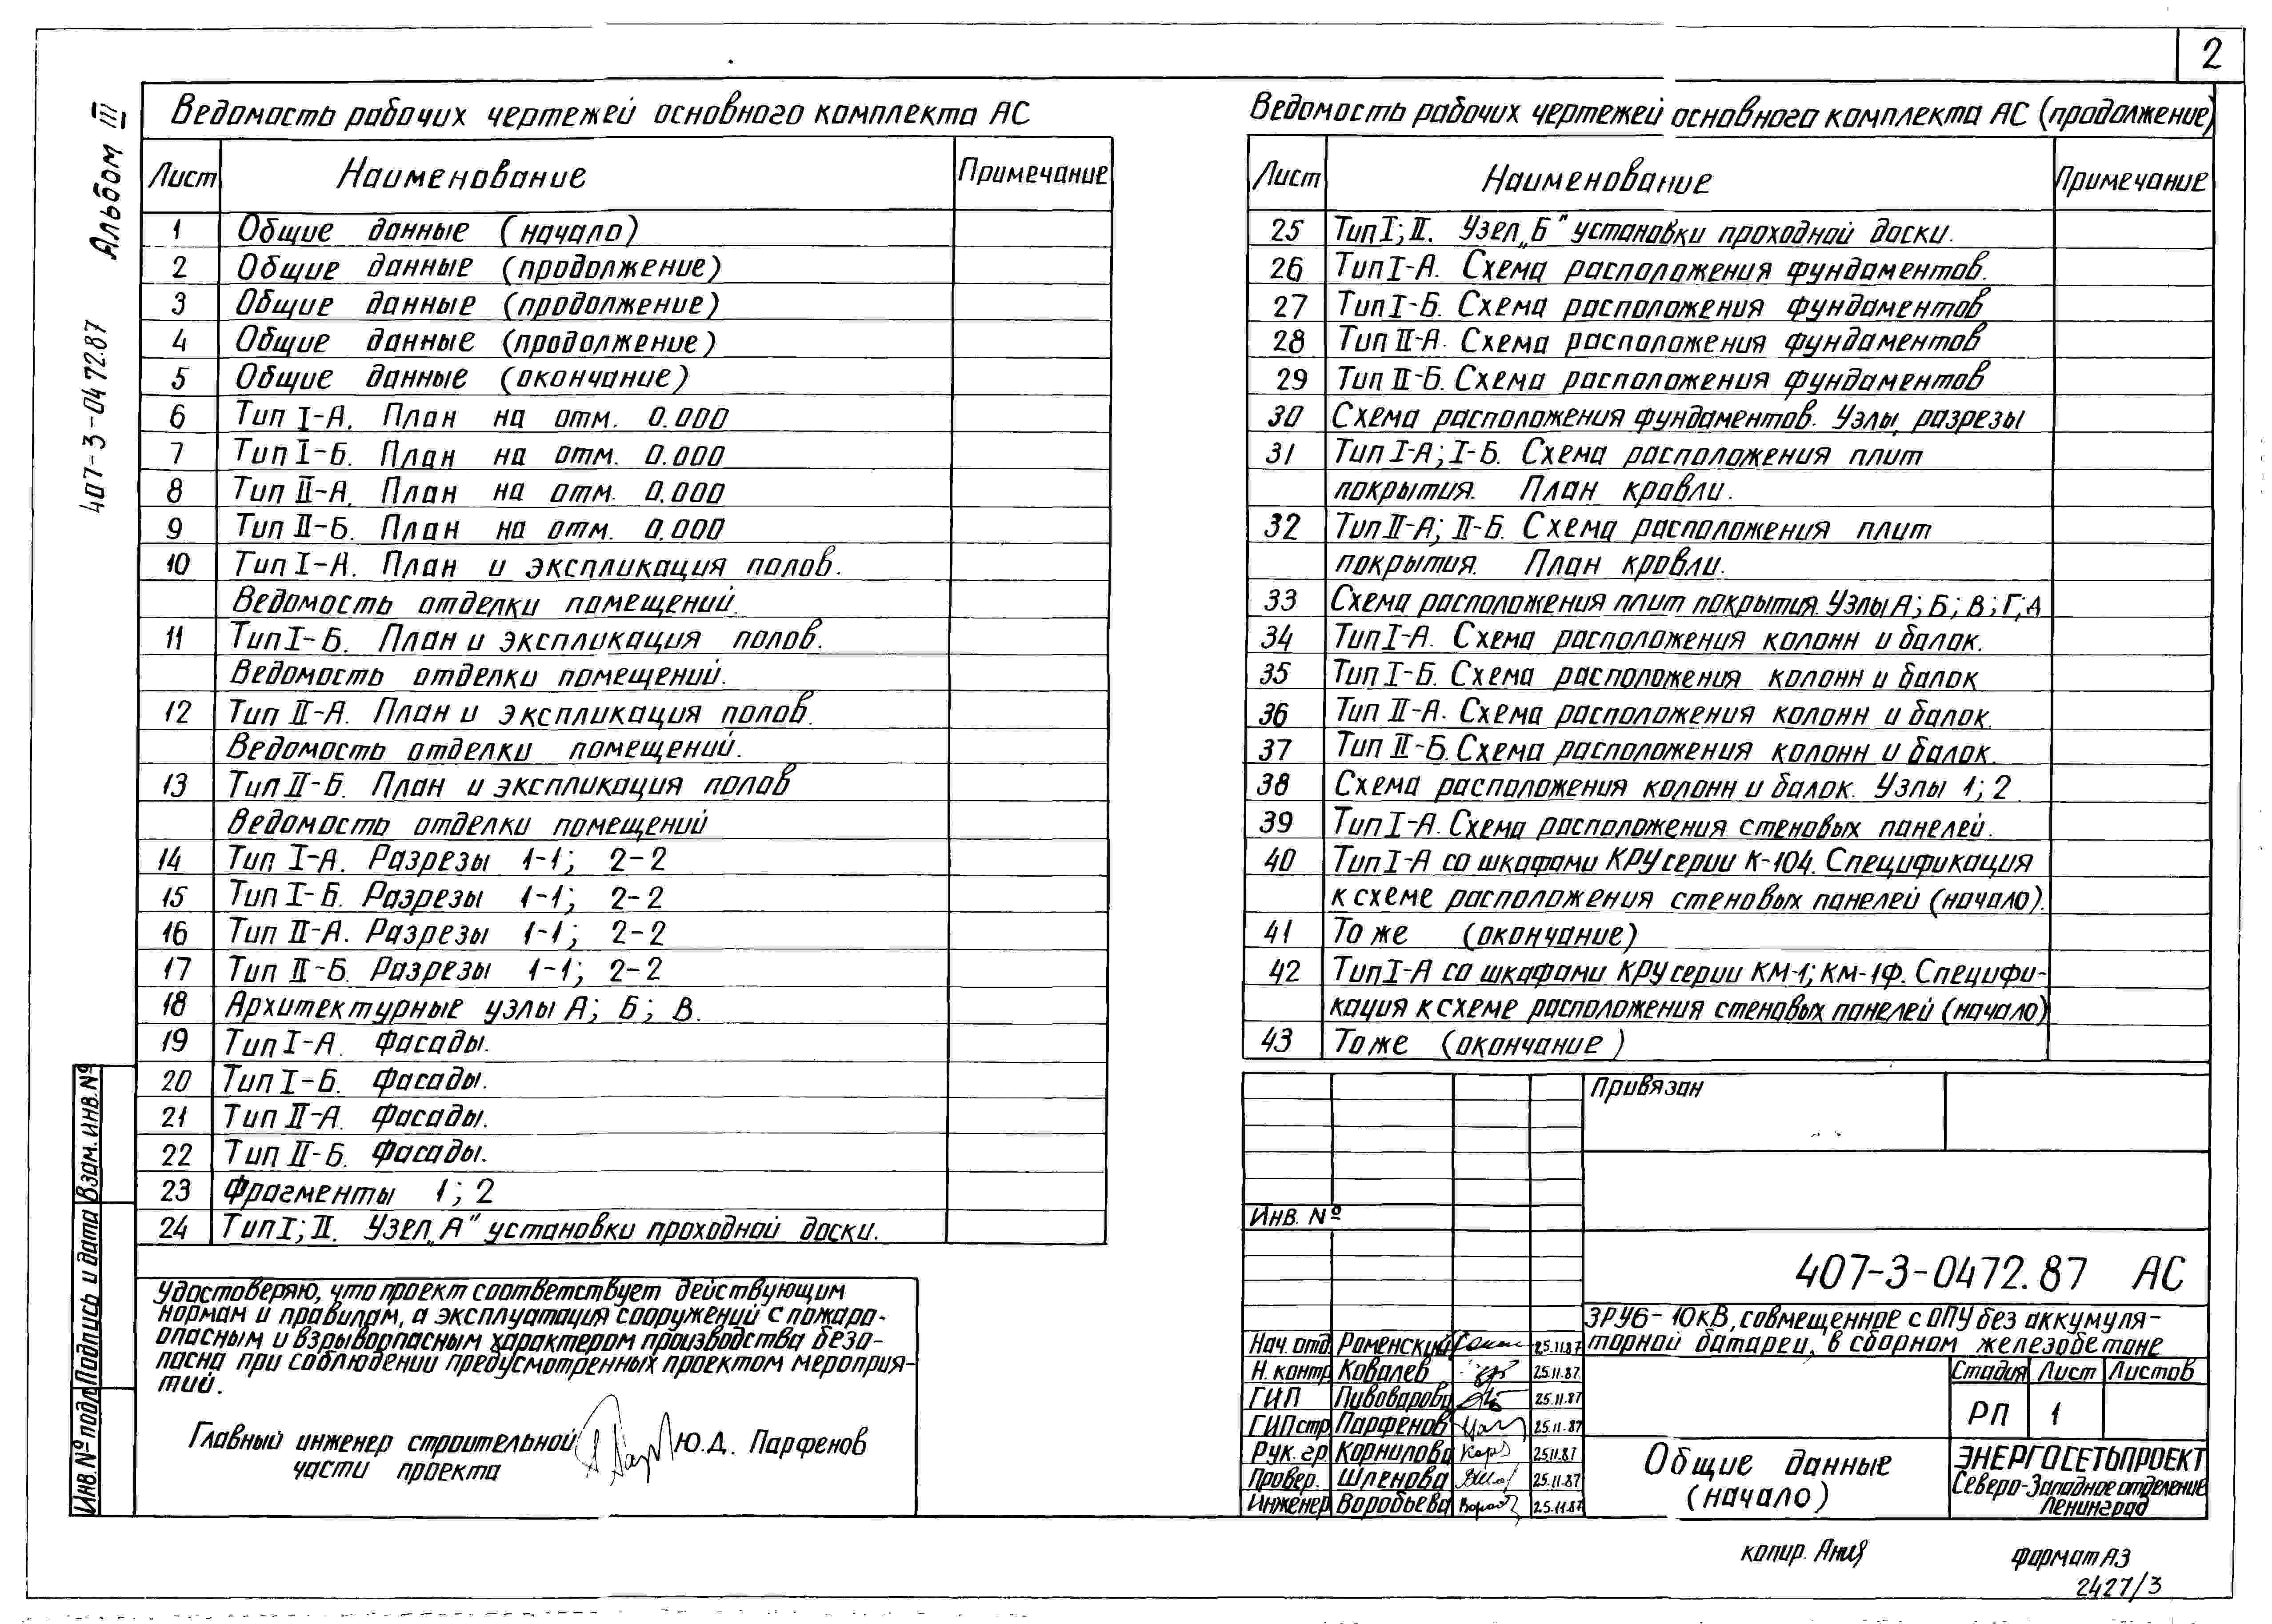 2
Альбом III
407-3-0472.87
Ведомость рабочих чертежей основного комплекта АС
Лист Наименование Примечание
1 Общие данные (начало)
2 Общие данные (продолжение)
3 Общие данные (продолжение)
4 Общие данные (продолжение)
5 Общие данные (окончание)
6 Тип I-А. План на отм. 0.000
7 Тип I-Б. План на отм. 0.000
8 Тип II-А. План на отм. 0.000
9 Тип II-Б. План на отм. 0.000
10 Тип I-А. План и экспликация полов.
Ведомость отделки помещений.
11 Тип I-Б. План и экспликация полов.
Ведомость отделки помещений.
12 Тип II-А. План и экспликация полов.
Ведомость отделки помещений.
13 Тип II-Б. План и экспликация полов
Ведомость отделки помещений
14 Тип I-А. Разрезы 1-1; 2-2
15 Тип I-Б. Разрезы 1-1; 2-2
16 Тип II-А. Разрезы 1-1; 2-2
17 Тип II-Б. Разрезы 1-1; 2-2
18 Архитектурные узлы А; Б; В.
19 Тип I-А. Фасады.
20 Тип I-Б. Фасады.
21 Тип II-А. Фасады.
22 Тип II-Б. Фасады.
23 Фрагменты 1; 2
24 Тип I; II. Узел „А" установки проходной доски.
Удостоверяю, что проект соответствует действующим
нормам и правилам, а эксплуатация сооружений с пожаро-
опасным и взрывоопасным характером производства безо-
пасна при соблюдении предусмотренных проектом мероприя-
тий.
Главный инженер строительной
части проекта
Ю.Д. Парфенов
Взам. инв. №
Подпись и дата
Инв. № подл
Ведомость рабочих чертежей основного комплекта АС (продолжение)
Лист Наименование Примечание
25 Тип I; II. Узел „Б" установки проходной доски.
26 Тип I-А. Схема расположения фундаментов.
27 Тип I-Б. Схема расположения фундаментов
28 Тип II-А. Схема расположения фундаментов
29 Тип II-Б. Схема расположения фундаментов
30 Схема расположения фундаментов. Узлы, разрезы
31 Тип I-А; I-Б. Схема расположения плит
покрытия. План кровли.
32 Тип II-А; II-Б. Схема расположения плит
покрытия. План кровли.
33 Схема расположения плит покрытия. Узлы А; Б; В; Г; Д
34 Тип I-А. Схема расположения колонн и балок.
35 Тип I-Б. Схема расположения колонн и балок
36 Тип II-А. Схема расположения колонн и балок.
37 Тип II-Б. Схема расположения колонн и балок.
38 Схема расположения колонн и балок. Узлы 1; 2
39 Тип I-А. Схема расположения стеновых панелей.
40 Тип I-А со шкафами КРУ серии К-104. Спецификация
к схеме расположения стеновых панелей (начало).
41 То же (окончание)
42 Тип I-А со шкафами КРУ серии КМ-1; КМ-1Ф. Специфи-
кация к схеме расположения стеновых панелей (начало)
43 То же (окончание)
Привязан
Инв. №
407-3-0472.87 АС
ЗРУ6-10кВ, совмещенное с ОПУ без аккумуля-
торной батареи, в сборном железобетоне
Нач. отд. Роменский 25.11.87
Н. контр Ковалев 25.11.87
ГИП Пивоварова 25.11.87
ГИПстр Парфенов 25.11.87
Рук. гр. Корнилова 25.11.87
Провер. Шленова 25.11.87
Инженер Воробьева 25.11.87
Стадия Лист Листов
РП 1
Общие данные
(начало)
ЭНЕРГОСЕТЬПРОЕКТ
Северо-Западное отделение
Ленинград
копир. Ания
формат А3
2427/3